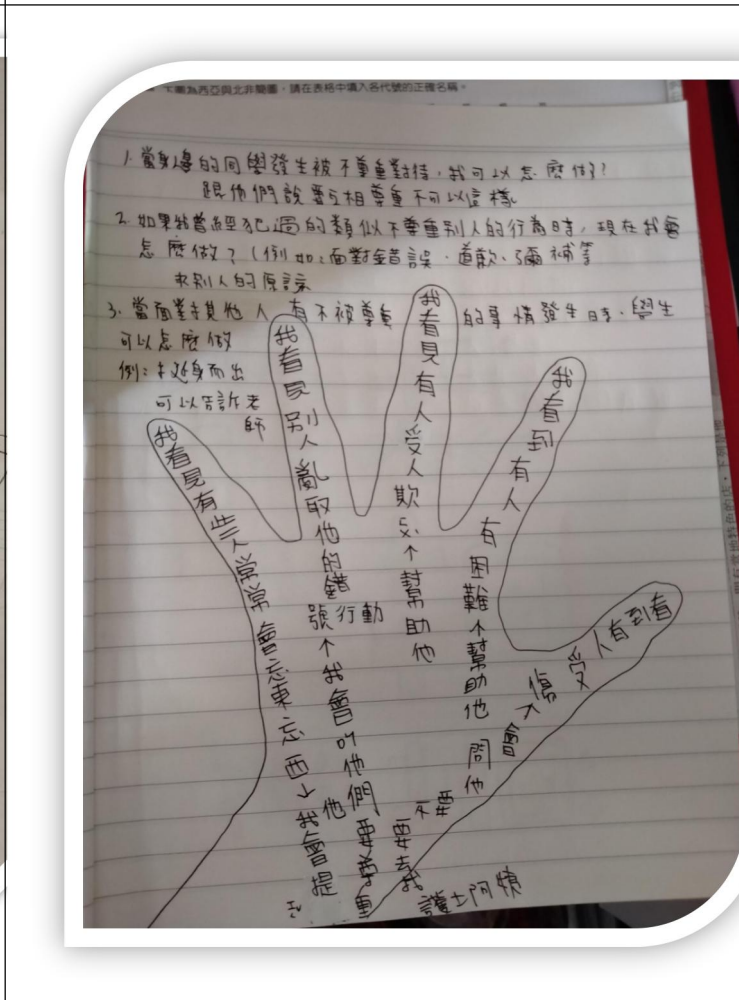 下圖為西亞與北非簡圖，請在表格中填入各代號的正確名稱。
1. 當身邊的同學發生被不尊重對待，我可以怎麼做?
跟他們說要互相尊重不可以這樣
2. 如果我曾經犯過的類似不尊重別人的行為時，現在我會
怎麼做?(例如:面對錯誤、道歉、彌補等
求別人的原諒
3. 當面對其他人有不被尊重的事情發生時，學生
可以怎麼做
例:挺身而出
可以告訴老
師
我看見有些人常常會忘東忘西↓我會提
我看見別人亂取他的錯
號行動
↑我會叫他們
要尊重
他
我看見有人受人欺
幫助他
我看到有人有困難
幫助他
看到有人受傷
會問他
要不要
要去找
護士阿姨